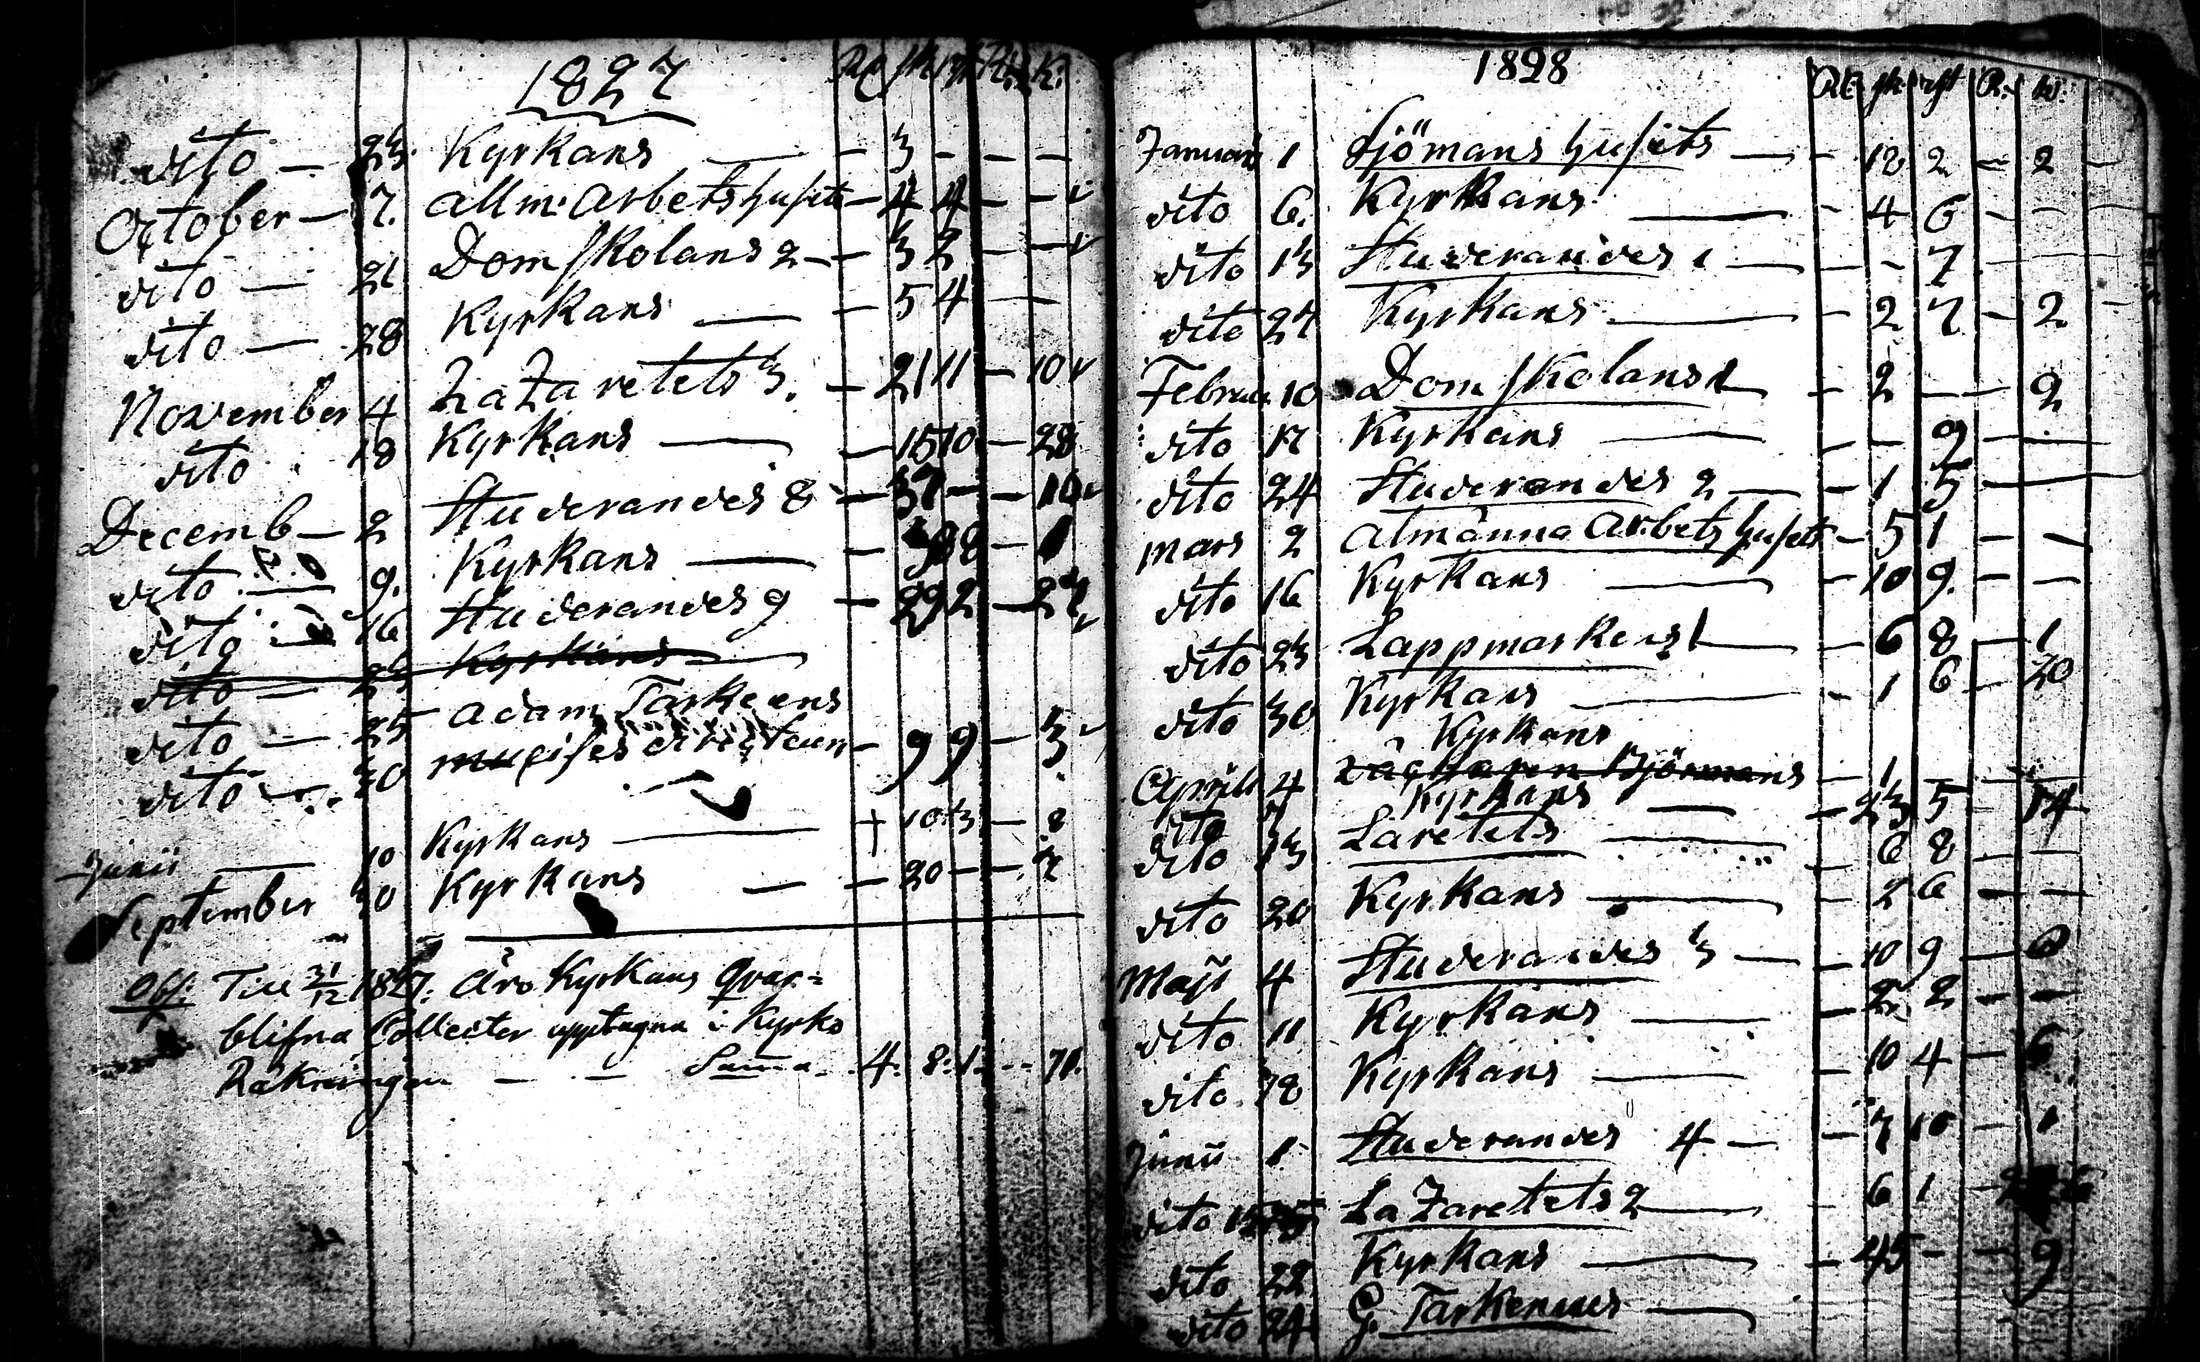 1827
dito — 23. Kyrkans — — 3 - - -
October — 7. Allm: Arbetshusets — 4 4 - -
dito — 21 Domskolans 2 — - 3 2 - -
dito — 28 Kyrkans — - 5 4 - -
November 4 Lazaretets 3. — 21 11 — 10
dito 18 Kyrkans — — 15 10 — 28
Decemb — 2 Studerandes 8 — 37 — —
dito 9. Kyrkans — —
dito 16 Studerandes 9 — 29 2 —
dito — Kyrkans —
dito — 25 Adam
dito 30 — 9 9 — 3
Junii — 10 Kyrkans — 10 3 — 8
September 30 Kyrkans — — 20 — —
Obs: Till 31/12 1827. Äro Kyrkans Qvar=
blifna Collecter upptagna i Kyrko
Räkningen — — Summa 4. 8: 1. -- 71.
1828
Rd sk rst R. k.
Januari 1 Sjömanshusets — - 18 2 - 2
dito 6. Kyrkans — - 4 6 - -
dito 13 Studerandes 1 — - - 7
dito 27 Kyrkans — - 2 7 - 2.
Februa 10 Domskolans 1 — 2 — — 2
dito 17 Kyrkans — — — 9 —
dito 24 Studerandes 2 — - 1 5 —
Mars 2 Almänna Arbetshuset — 5 1 - -
dito 16 Kyrkans — - 10 9. - -
dito 23 Lappmarkens 1 — 6 8 — 1
dito 30 Kyrkans — - 1 6 - 20
Kyrkans
Aprill 4 Björmans — 1
dito 7 Kyrkans — - 23 5 - 14
dito 13 Laretets — 6 8 —
dito 20 Kyrkans — 2 6 - -
Maji 4 Studerandes 3 — 10 9 —
dito 11 Kyrkans — - 2 2 - -
dito 18 Kyrkans — 10 4 — 6
Junii 1 Studerandes 4 — - 7 10 - 1
dito 15 Lazaretets 2 — 6 1 —
dito 22 Kyrkans — - 45 - - 9
dito 24 G. —